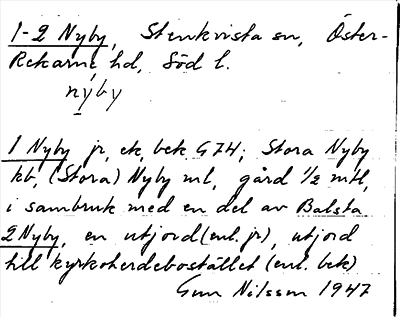 1-2 Nyby, Stenkvista sn, Öster-
Rekarne hd, Söd l.
nýby
1 Nyby jr, ek, bek G74; Stora Nyby
kb, (Stora) Nyby ml, gård 1/2 mtl,
i sambruk med en del av Balsta
2 Nyby, en utjord (enl. jr), utjord
till kyrkoherdebostället (enl. bek)
Gun Nilsson 1947